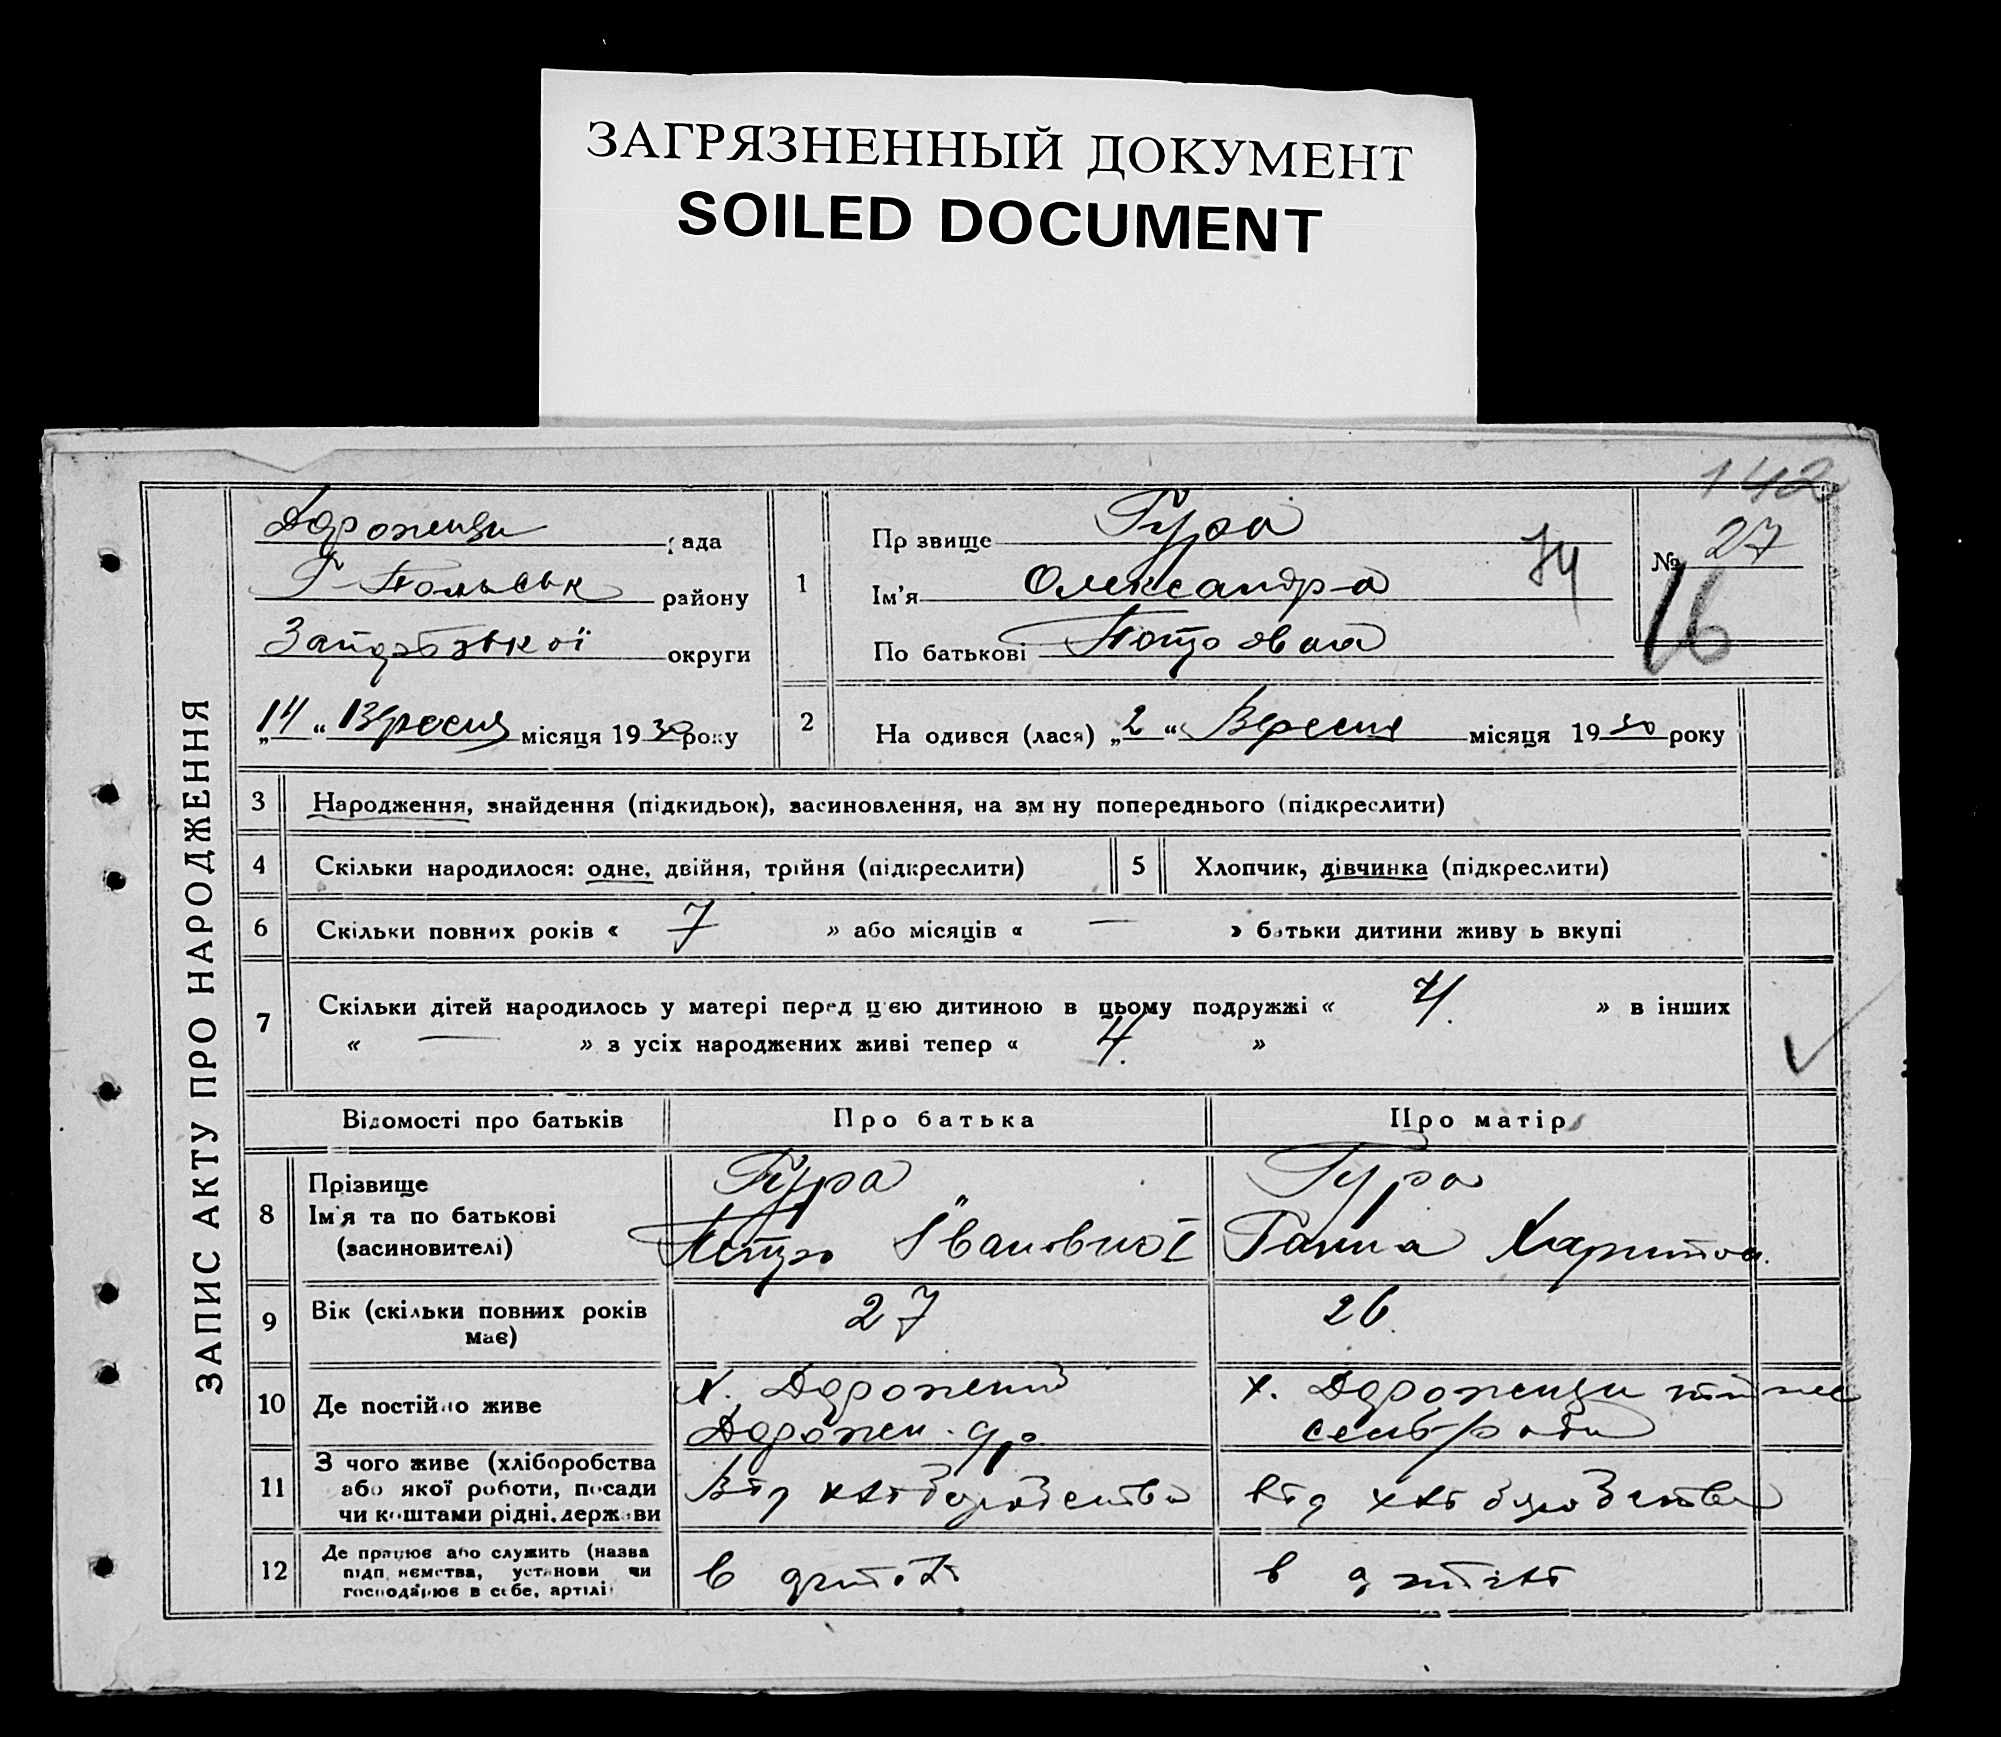 ЗАГРЯЗНЕННЫЙ ДОКУМЕНТ
SOILED DOCUMENT
142
ЗАПИС АКТУ ПРО НАРОДЖЕННЯ
рада
району
округи
„14“ Вересня місяця 1930 року
1
Пр звище Гура
Ім'я Олександра
По батькові
74
№ 27
16
2
На одився (лася) „2“ Вересня місяця 1930 року
3 Народження, знайдення (підкидьок), засиновлення, на зм ну попереднього (підкреслити)
4 Скільки народилося: одне, двійня, трійня (підкреслити)
5 Хлопчик, дівчинка (підкреслити)
6 Скільки повних років « 7 » або місяців « — » батьки дитини живу ь вкупі
7 Скільки дітей народилось у матері перед цією дитиною в цьому подружжі « 4. » в інших
« — » з усіх народжених живі тепер « 4. »
Відомості про батьків Про батька Про матір
8 Прізвище
Ім'я та по батькові
(засиновителі)
Гура
Петро
Гура
Ганна Харитон.
9 Вік (скільки повних років
має)
27
26
10 Де постійно живе
х.
х.
11 З чого живе (хліборобства
або якої роботи, посади
чи коштами рідні, держави
Від хліборобства
від хліборобства
12 Де працює або служить (назва
підп иємства, установи чи
господарює в себе, артілі
в
в